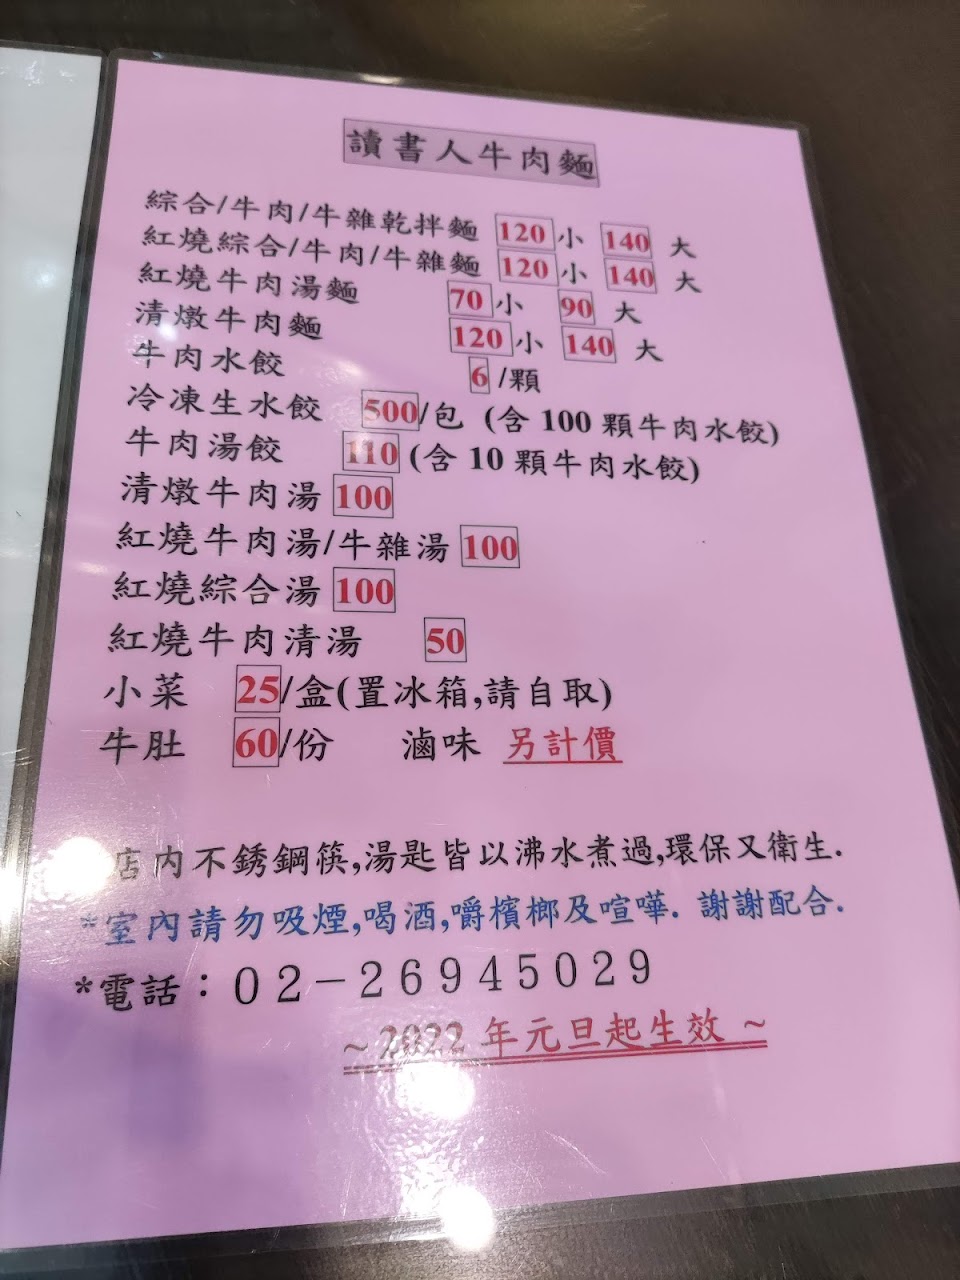 讀書人牛肉麵
綜合/牛肉/牛雜乾拌麵 120 小 140 大
紅燒綜合/牛肉/牛雜麵 120 小 140 大
紅燒牛肉湯麵 70 小 90 大
清燉牛肉麵 120 小 140 大
牛肉水餃 6 /顆
冷凍生水餃 500/包 (含 100 顆牛肉水餃)
牛肉湯餃 110 (含 10 顆牛肉水餃)
清燉牛肉湯 100
紅燒牛肉湯/牛雜湯 100
紅燒綜合湯 100
紅燒牛肉清湯 50
小菜 25/盒(置冰箱,請自取)
牛肚 60/份 滷味 另計價
店內不銹鋼筷,湯匙皆以沸水煮過,環保又衛生.
*室內請勿吸煙,喝酒,嚼檳榔及喧嘩. 謝謝配合.
*電話：02－26945029
~ 2022 年元旦起生效 ~